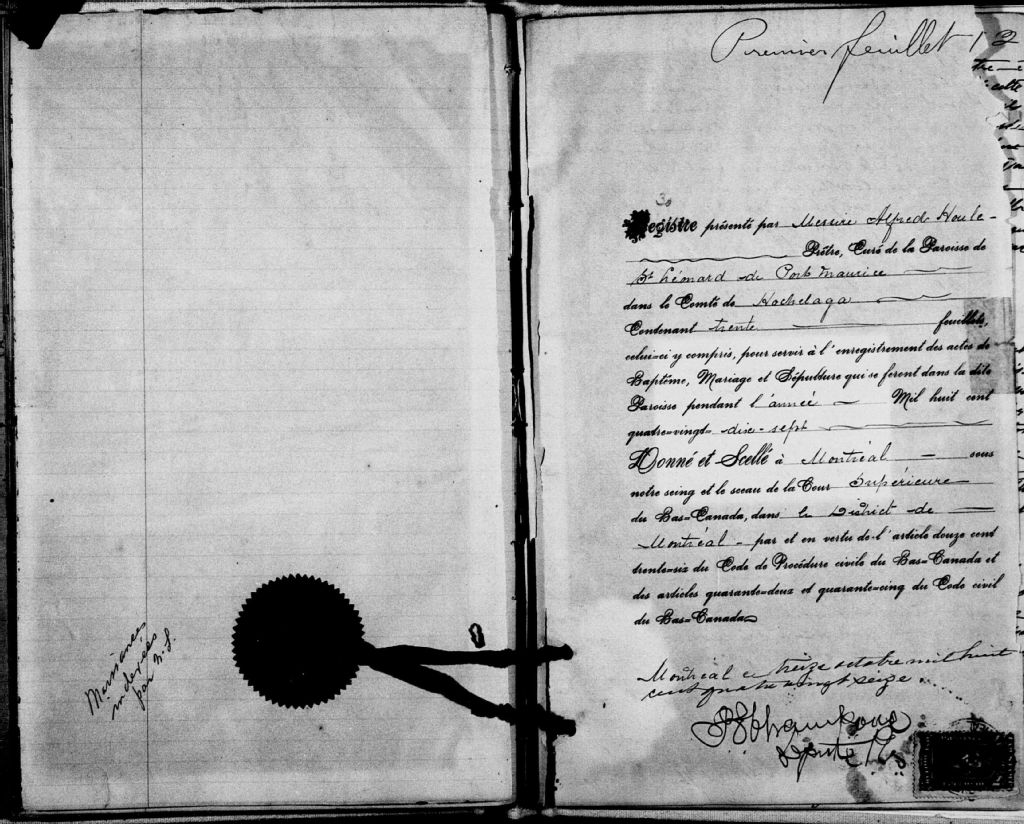 Naissances
indexées
par N. S.
Premier feuillet 1 2
30
Registre présenté par Messire Alfred Houle
Prêtre, Curé de la Paroisse de
St Léonard de Port Maurice
dans le Comté de Hochelaga
Contenant trente feuillets,
celui-ci y compris, pour servir à l'enregistrement des actes de
Baptême, Mariage et Sépulture qui se feront dans la dite
Paroisse pendant l'année Mil huit cent
quatre-vingt-dix-sept
Donné et Scellé à Montréal sous
notre seing et le sceau de la Cour Supérieure
du Bas-Canada, dans le District de
Montréal par et en vertu de l'article douze cent
trente-six du Code de Procédure civile du Bas-Canada et
des articles quarante-deux et quarante-cinq du Code civil
du Bas-Canada
Montréal ce treize octobre mil huit
cent quatre vingt seize.
Député